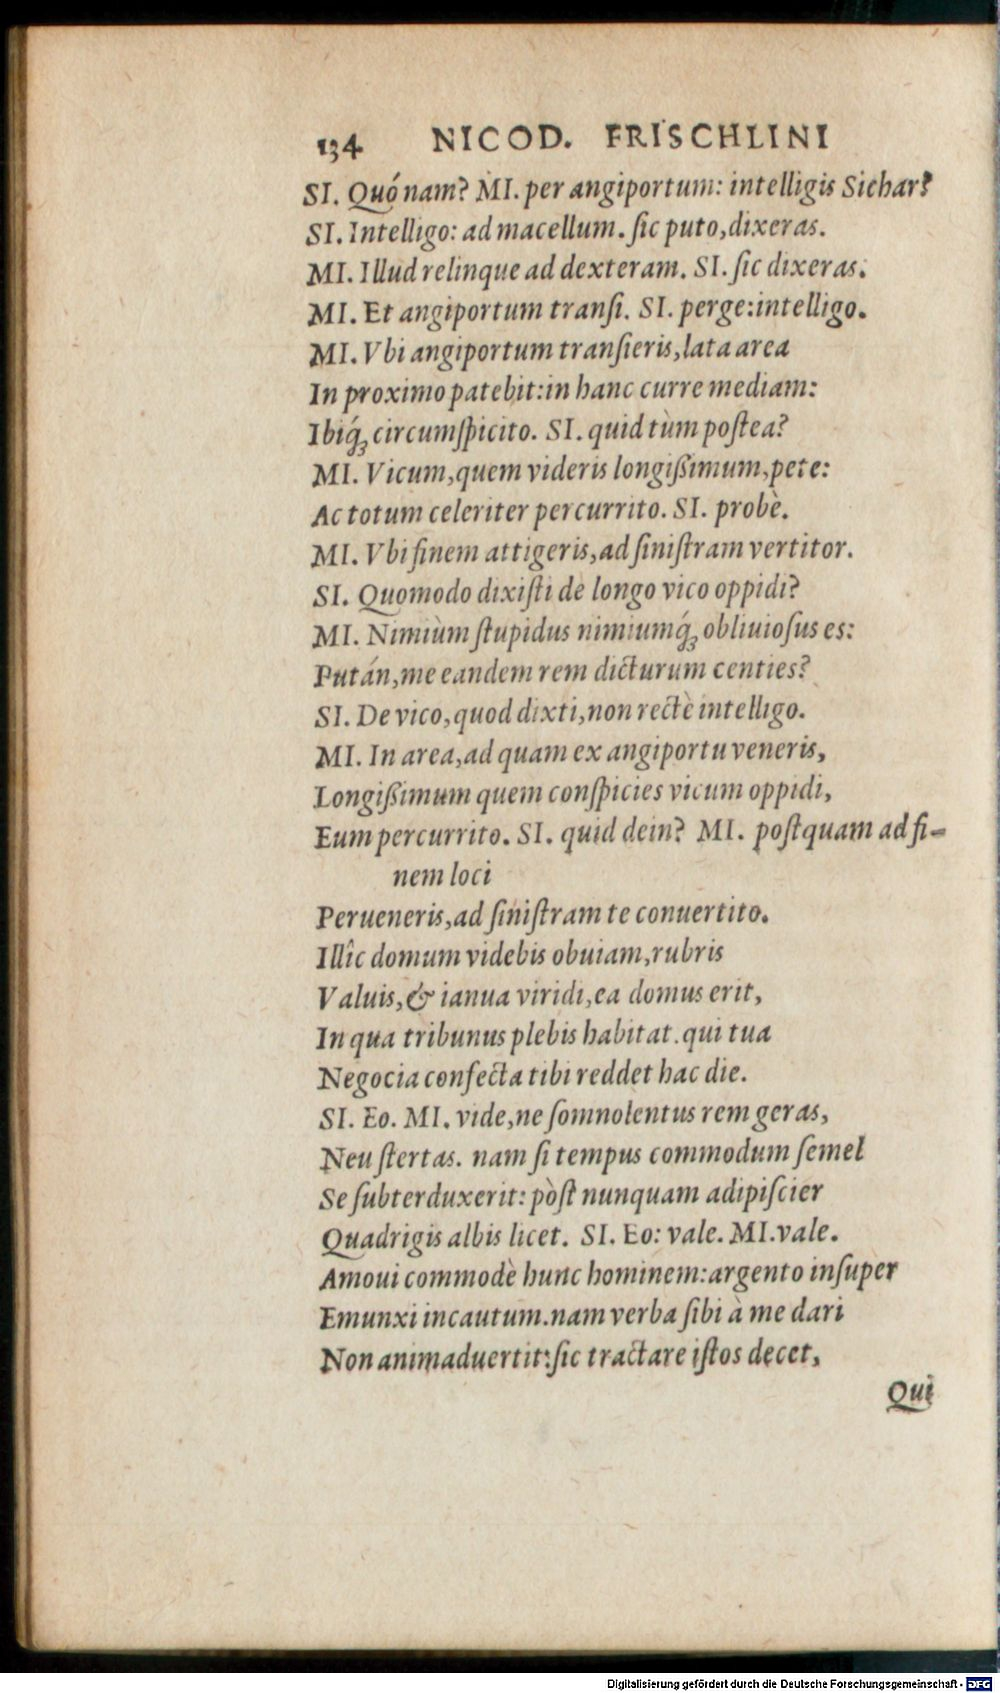 134 NICOD. FRISCHLINI
SI. Quónam? MI. per angiportum: intelligis Sichar?
SI. Intelligo: ad macellum. ſic puto, dixeras.
MI. Illud relinque ad dexteram. SI. ſic dixeras.
MI. Et angiportum tranſi. SI. perge: intelligo.
MI. Vbi angiportum tranſieris, lata area
In proximo patebit: in hanc curre mediam:
Ibiq́ꝫ circumſpicito. SI. quid tùm poſtea?
MI. Vicum, quem videris longiſſimum, pete:
Ac totum celeriter percurrito. SI. probè.
MI. Vbi finem attigeris, ad ſiniſtram vertitor.
SI. Quomodo dixiſti de longo vico oppidi?
MI. Nimiùm ſtupidus nimiumq́ꝫ obliuioſus es:
Pután, me eandem rem dicturum centies?
SI. De vico, quod dixti, non rectè intelligo.
MI. In area, ad quam ex angiportu veneris,
Longiſſimum quem conſpicies vicum oppidi,
Eum percurrito. SI. quid dein? MI. poſtquam ad fi-
nem loci
Perueneris, ad ſiniſtram te conuertito.
Illîc domum videbis obuiam, rubris
Valuis, & ianua viridi, ea domus erit,
In qua tribunus plebis habitat. qui tua
Negocia confecta tibi reddet hac die.
SI. Eo. MI. vide, ne ſomnolentus rem geras,
Neu ſtertas. nam ſi tempus commodum ſemel
Se ſubterduxerit: pòſt nunquam adipiſcier
Quadrigis albis licet. SI. Eo: vale. MI. vale.
Amoui commodè hunc hominem: argento inſuper
Emunxi incautum. nam verba ſibi à me dari
Non animaduertit: ſic tractare iſtos decet,
Qui
Digitalisierung gefördert durch die Deutsche Forschungsgemeinschaft - DFG